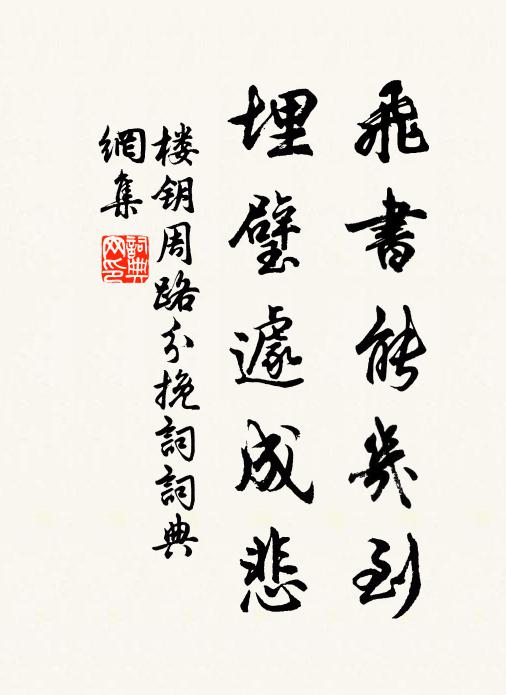 飛書能幾到
埋璧遽成悲
楼钥周路分挽詞詞典
網集
詞典
网印